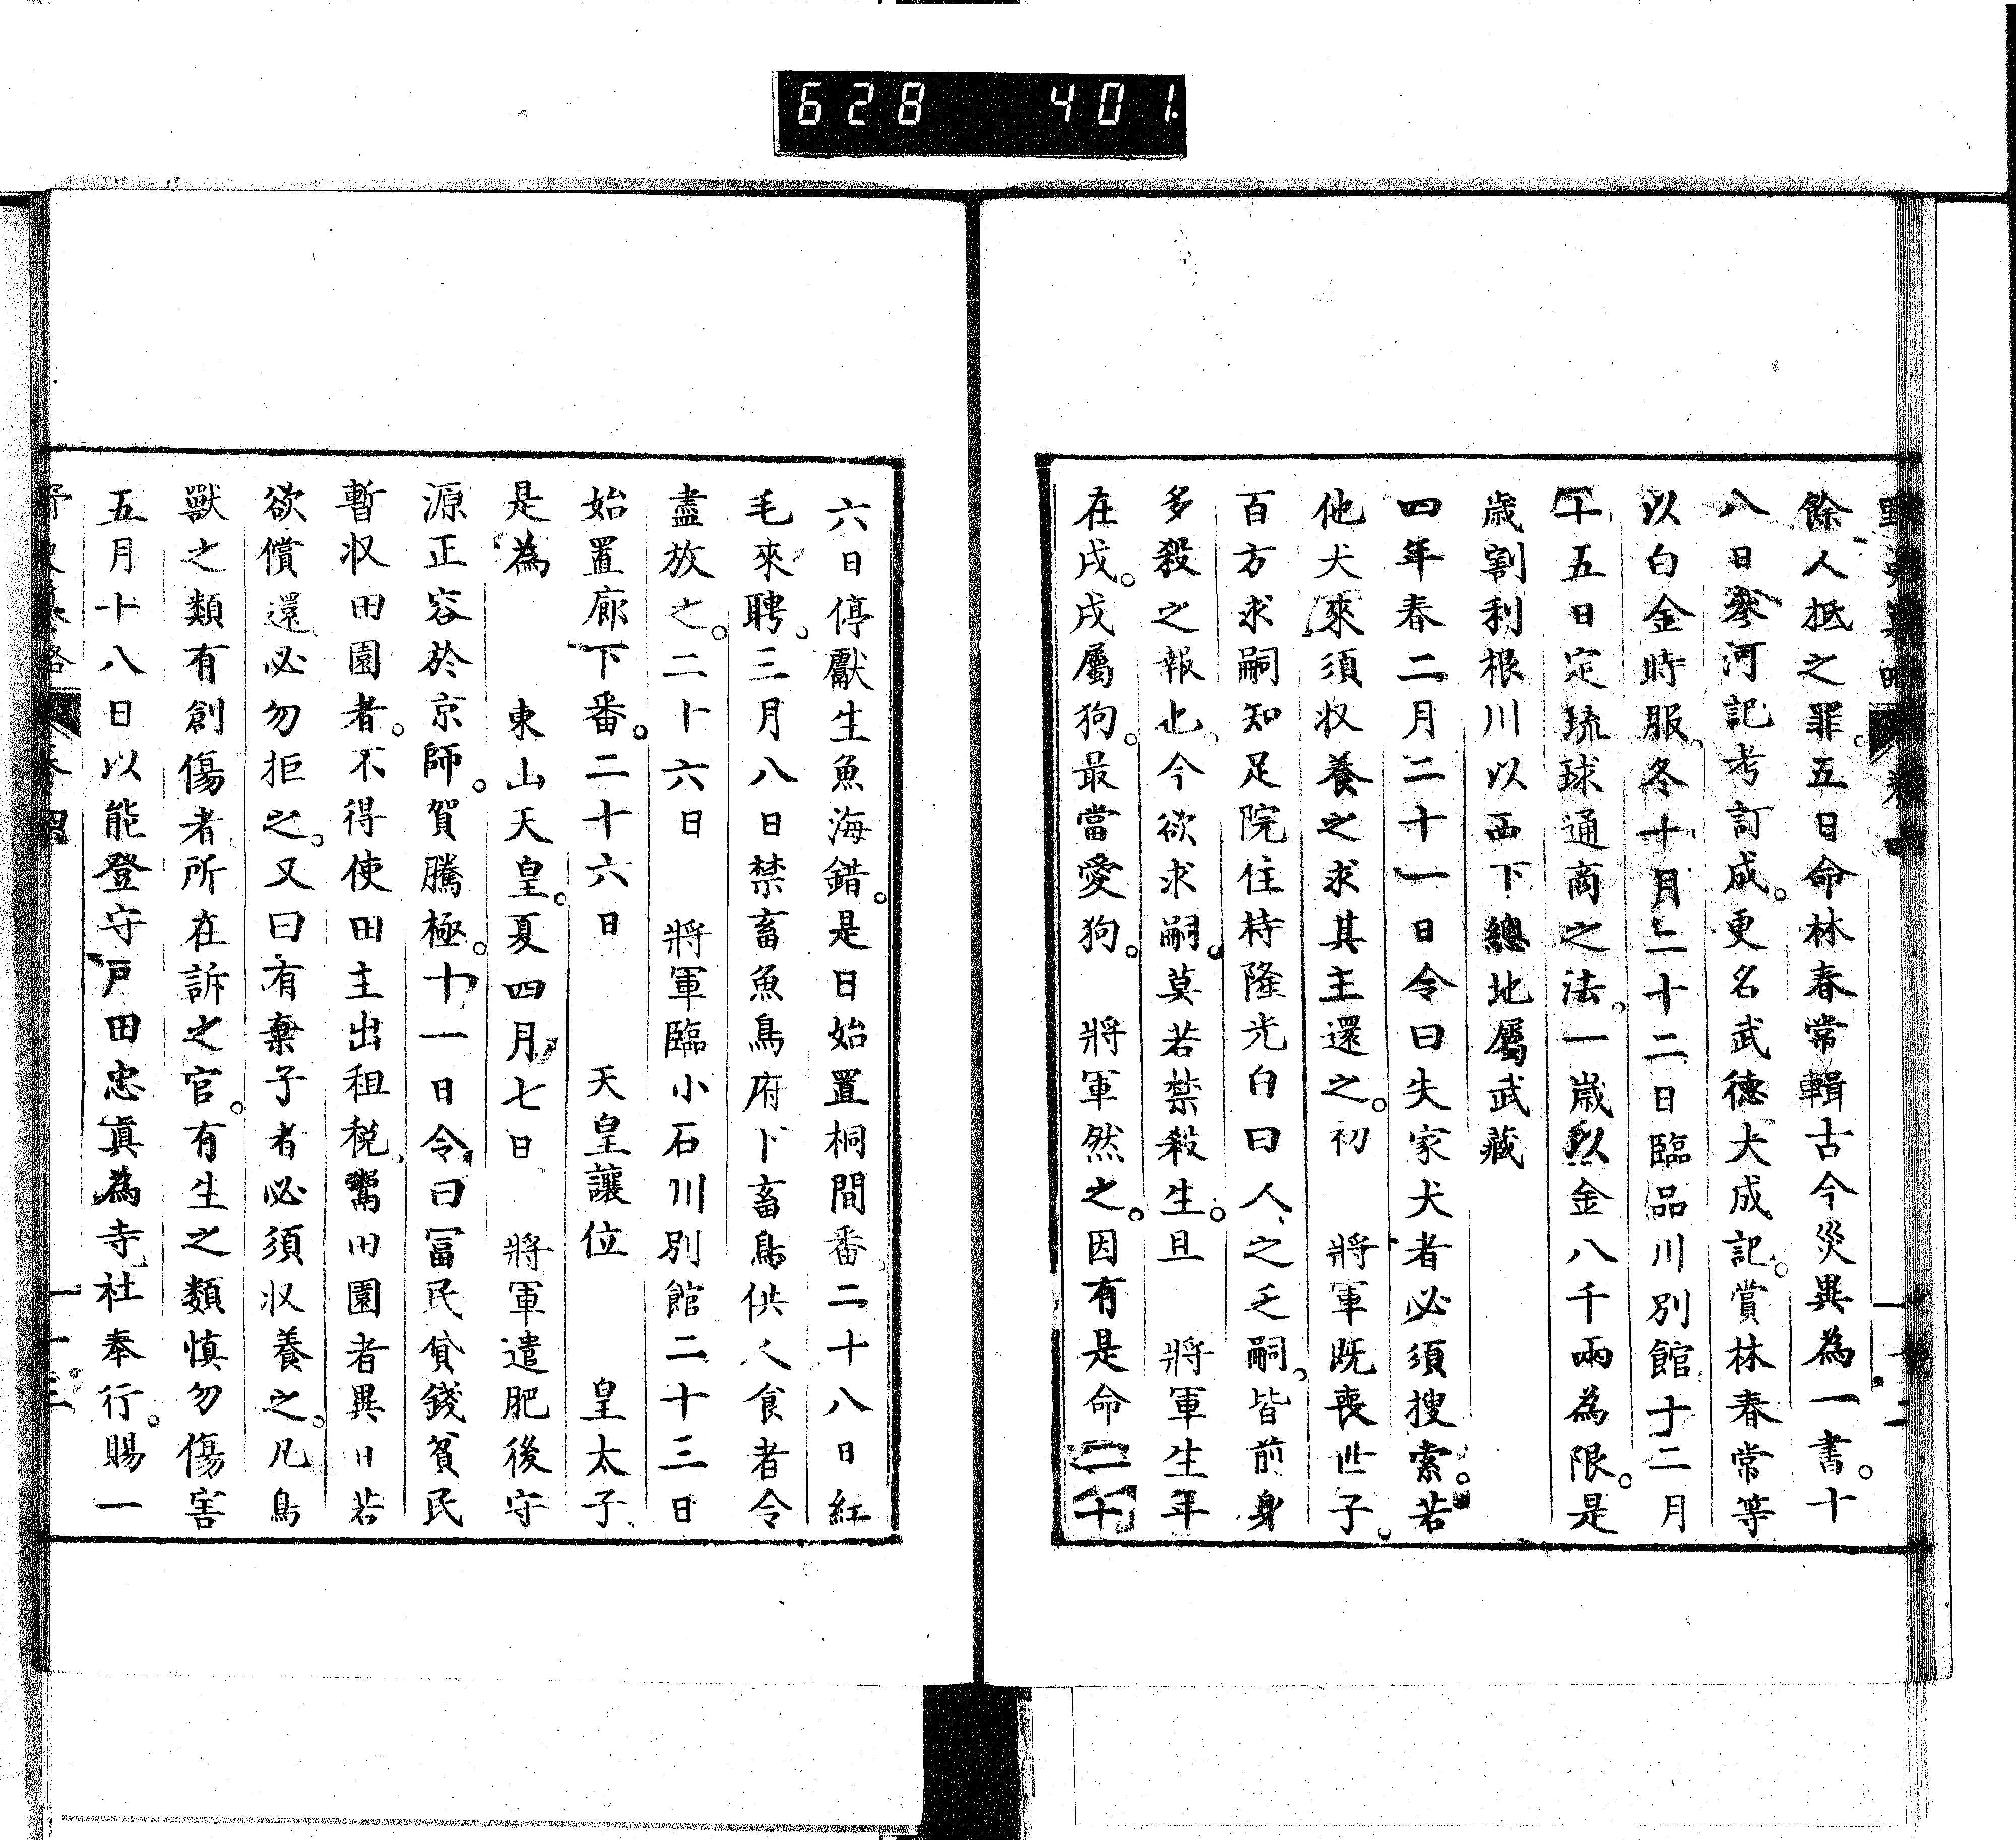 628 401.
餘人抵之罪。五日命林春常輯古今災異為一書。十
八日參河記考訂成。更名武德大成記。賞林春常等
以白金時服。冬十月二十二日臨品川別館十二月
十五日定琉球通商之法。一歳以金八千兩為限。是
歳割利根川以西下總地屬武藏
四年春二月二十一日令曰失家犬者必須搜索。若
他犬來須收養之求其主還之。初　將軍既喪世子。
百方求嗣知足院住持隆光白曰人之乏嗣。皆前身
多殺之報也。今欲求嗣。莫若禁殺生。且　將軍生年
在戌。戌屬狗。最當愛狗。　將軍然之。因有是命二十
六日停獻生魚海錯。是日始置桐間番。二十八日紅
毛來聘。三月八日禁畜魚鳥府下畜鳥供人食者令
盡放之。二十六日　將軍臨小石川別館二十三日
始置廊下番。二十六日　天皇讓位　皇太子
是為　東山天皇。夏四月七日　將軍遣肥後守
源正容於京師。賀騰極。十一日令曰冨民貸錢貧民
暫收田園者。不得使田主出租税。鬻田園者異日若
欲償還必勿拒之。又曰有棄子者必須收養之。凡鳥
獸之類有創傷者所在訴之官。有生之類慎勿傷害
五月十八日以能登守戸田忠眞為寺社奉行。賜一